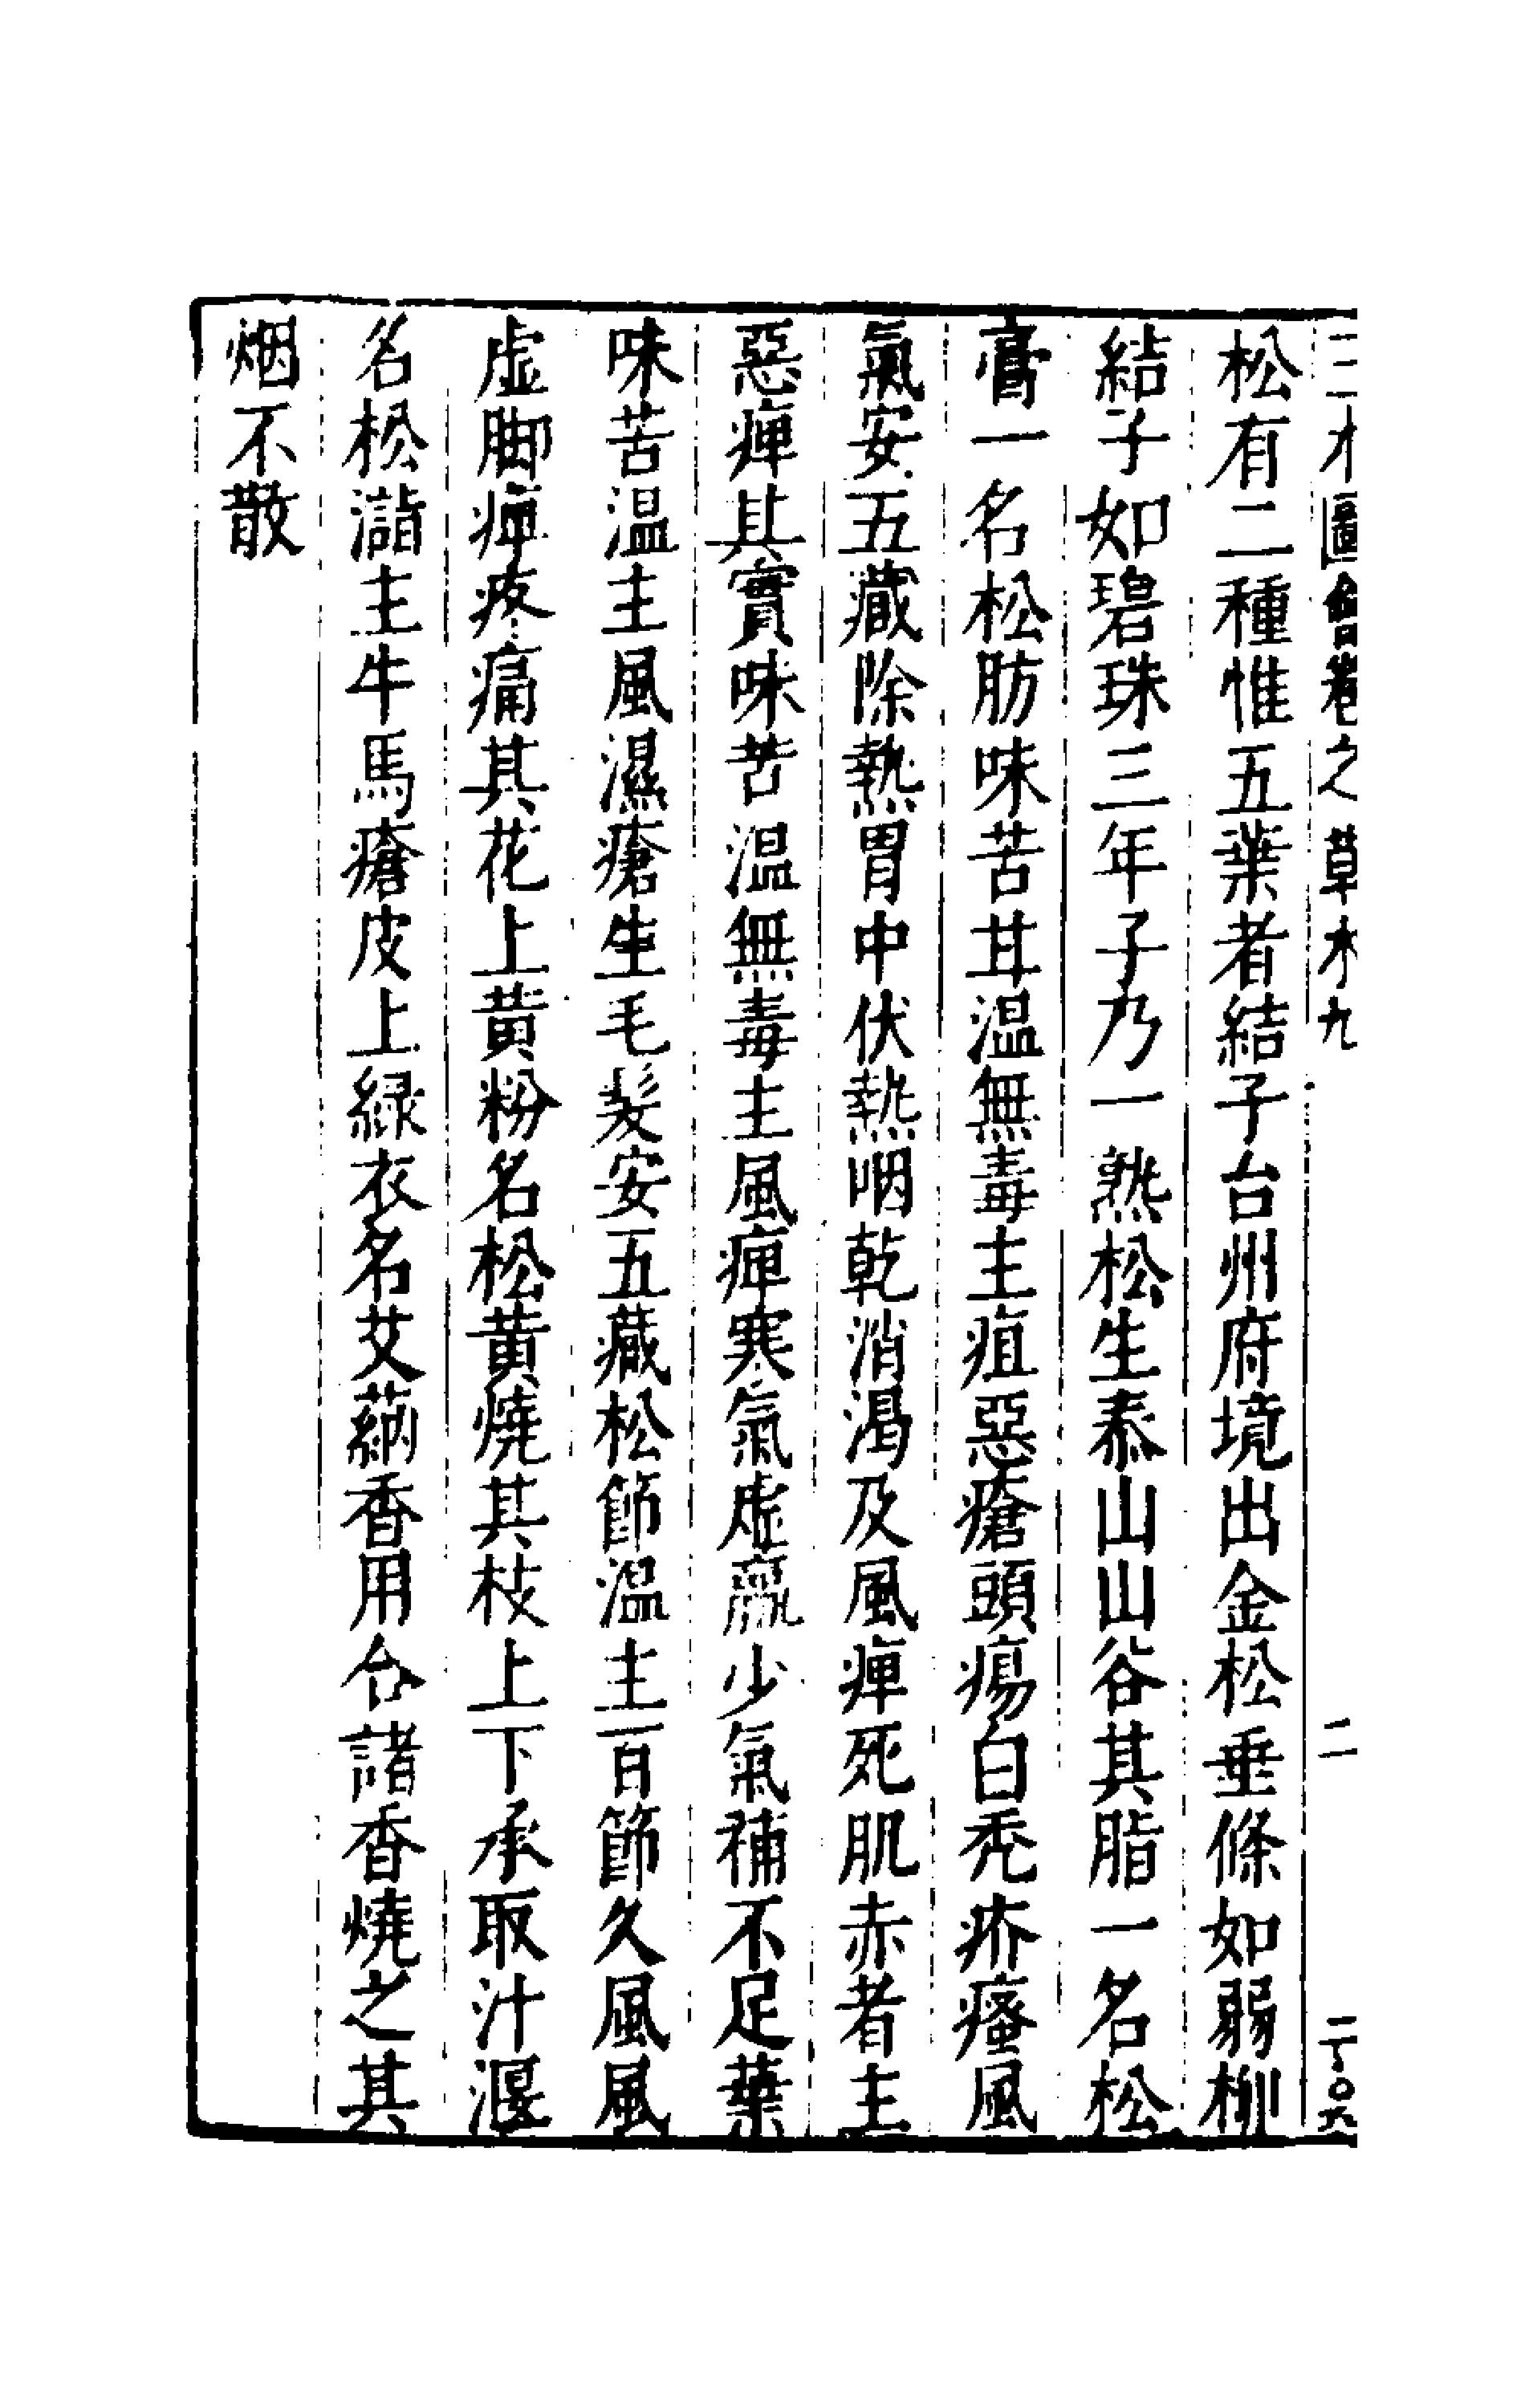 三才圖會卷之 草木九 二 二〇六
松有二種惟五葉者結子台州府境出金松垂條如弱柳
結子如碧珠三年子乃一熟松生泰山山谷其脂一名松
膏一名松肪味苦甘温無毒主疽惡瘡頭瘍白禿疥瘙風
氣安五藏除熱胃中伏熱咽乾消渴及風痺死肌赤者主
惡痺其實味苦温無毒主風痺寒氣虛羸少氣補不足葉
味苦温主風濕瘡生毛髮安五藏松節温主百節久風風
虛脚痺疼痛其花上黃粉名松黃燒其枝上下承取汁湮
名松㵎主牛馬瘡皮上緑衣名艾蒳香用合諸香燒之其
烟不散